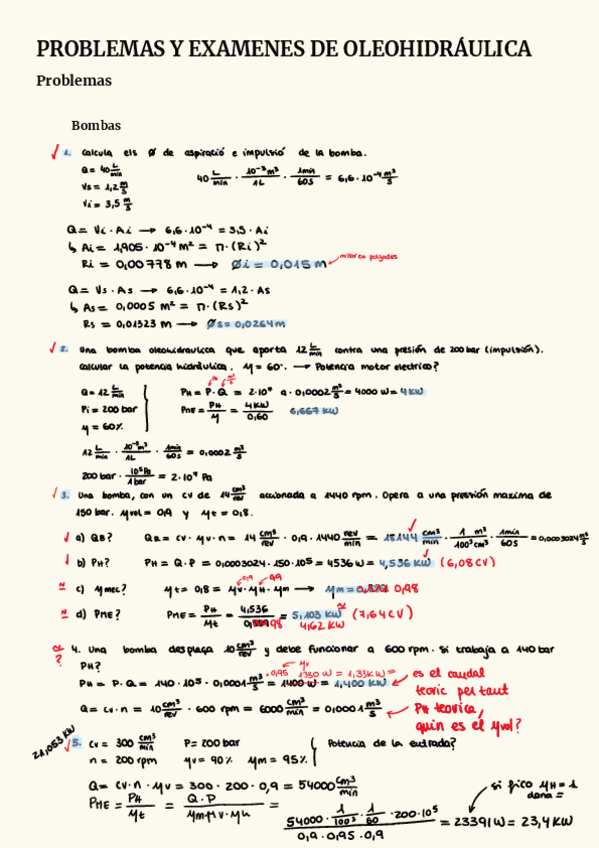 PROBLEMAS Y EXAMENES DE OLEOHIDRÁULICA
Problemas
Bombas
✓ 1. Calcula els Ø de aspiració e impulsió de la bomba.
Q = 40 L/min
40 L/min · 10⁻³m³/1L · 1min/60s = 6,6·10⁻⁴ m³/s
Vs = 1,2 m/s
Vi = 3,5 m/s
Q = Vi · Ai → 6,6·10⁻⁴ = 3,5 · Ai
↳ Ai = 1,905·10⁻⁴ m² = π·(Ri)²
Ri = 0,00778 m → Øi = 0,015 m
Q = Vs · As → 6,6·10⁻⁴ = 1,2 · As
↳ As = 0,0005 m² = π·(Rs)²
Rs = 0,01323 m → Øs = 0,0264 m
✓ 2. Una bomba oleohidraulica que aporta 12 L/min contra una presión de 200 bar (impulsión).
calcular la potencia hidráulica. η = 60%. → Potencia motor electrico?
Q = 12 L/min PH = P · Q = 2·10⁷ · 0,0002 m³/s = 4000 W = 4 KW
Pi = 200 bar PME = PH/η = 4KW/0,60 6,667 KW
η = 60%
12 L/min · 10⁻³m³/1L · 1min/60s = 0,0002 m³/s
200 bar · 10⁵Pa/1bar = 2·10⁷ Pa
✓ 3. Una bomba, con un cv de 14 cm³/rev accionada a 1440 rpm. Opera a una pressión maxima de
150 bar. ηvol = 0,9 y ηt = 0,8.
✓ a) QB? QR = cv · ηv · n = 14 cm³/rev · 0,9 · 1440 rev/min = 18144 cm³/min · 1 m³/100³cm³ · 1min/60s = 0,0003024 m³/s
✓ b) PH? PH = Q · P = 0,0003024 · 150·10⁵ = 4536 W = 4,536 KW (6,08 CV)
≈ c) ηmec? ηt = 0,8 = ηv · ηH · ηm → ηm = 0,98
0,9
99
≈ d) PME? PME = PH/ηt = 4,536/0,98 = 5,103 KW ≈ (7,64 CV)
4,62 KW
≈ ? 4. Una bomba desplaça 10 cm³/rev y debe funcionar a 600 rpm. Si trabaja a 140 bar
PH?
0,95 ← ηv
1330 W = 1,33KW =
PH = P · Q = 140·10⁵ · 0,0001 m³/s = 1400 W = 1,400 KW
Q = cv · n = 10 cm³/rev · 600 rpm = 6000 cm³/min = 0,0001 m³/s
es el caudal
teoric per tant
PH teorica,
quin es el ηvol?
21,053 KW
✓ 5. Cv = 300 cm³/min P = 200 bar Potencia de la entrada?
n = 200 rpm ηv = 90% ηm = 95%
Q = cv · n · ηv = 300 · 200 · 0,9 = 54000 cm³/min
si fico ηH = 1
dona =
PME = PH/ηt = Q·P/ηm·ηv·ηH = 54000 · 1/100³ · 1/60 · 200·10⁵ / 0,9 · 0,95 · 0,9 = 23391 W = 23,4 KW